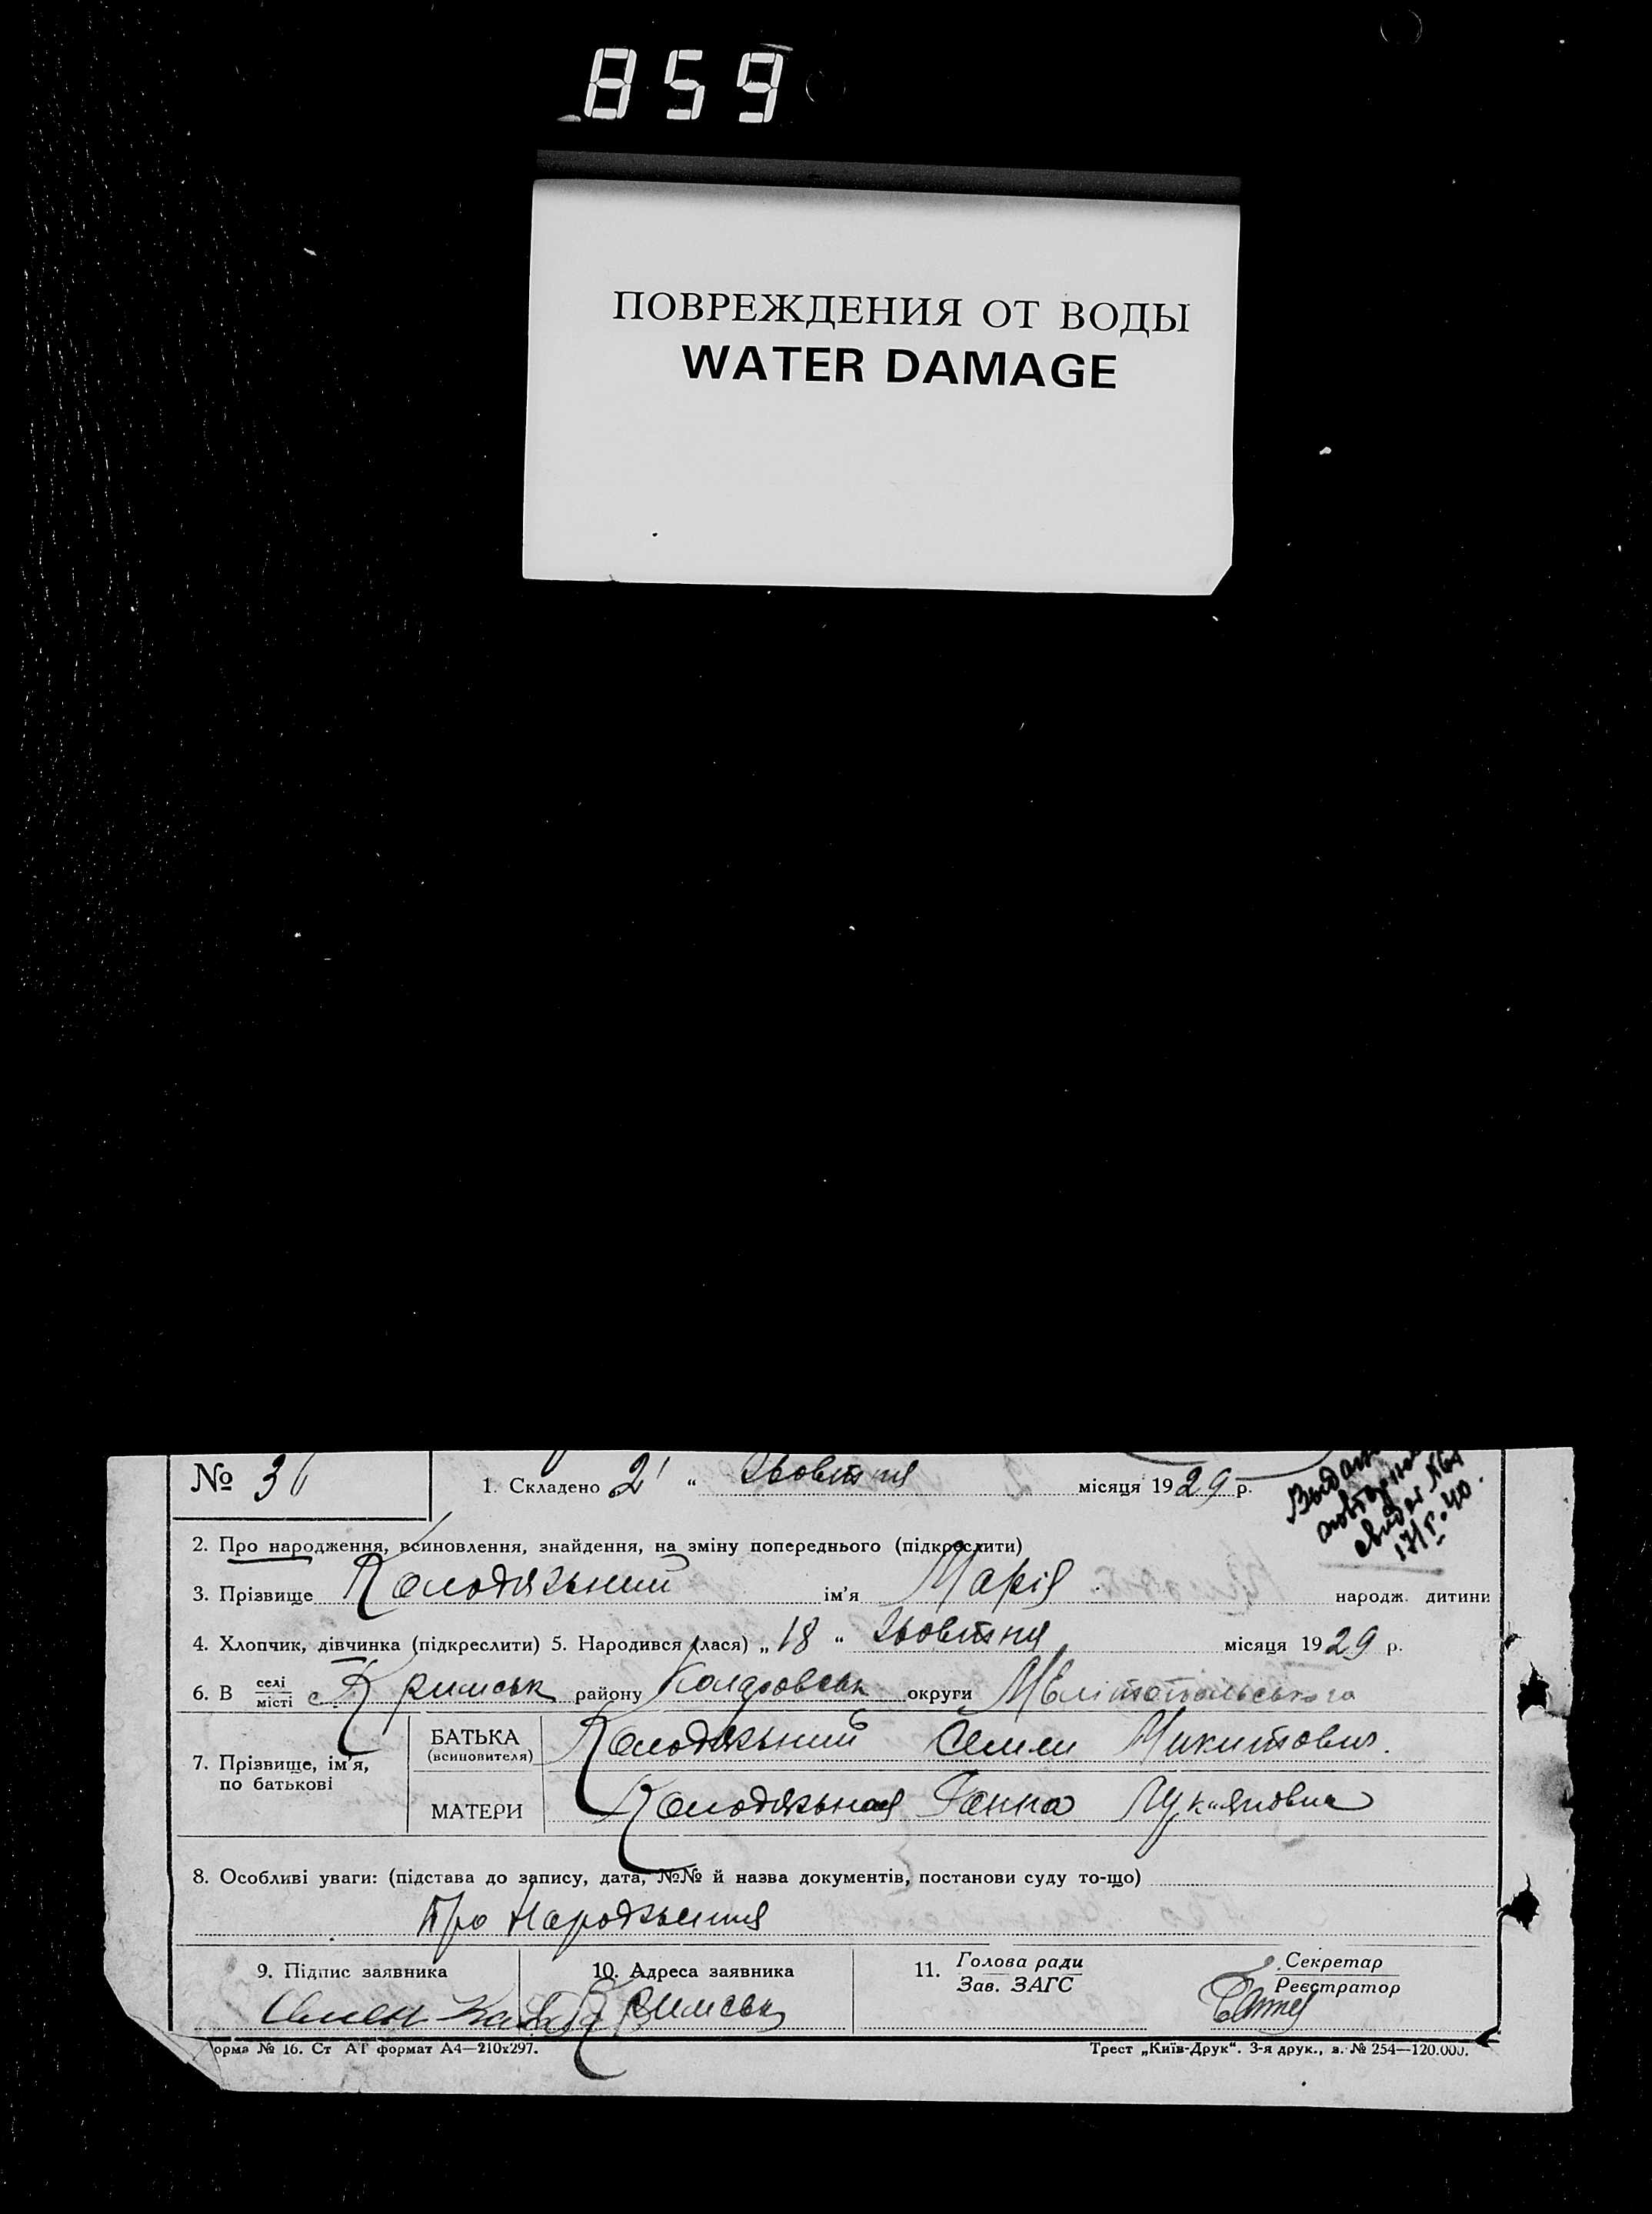 859
ПОВРЕЖДЕНИЯ ОТ ВОДЫ
WATER DAMAGE
№ 36
1. Складено 21 " Жовтня місяця 1929 р.
Выдано
повторное
свидет.
17/V-40.
2. Про народження, всиновлення, знайдення, на зміну попереднього (підкреслити)
3. Прізвище Колодязьний ім'я Марія народж. дитини
4. Хлопчик, дівчинка (підкреслити) 5. Народився (лася) „ 18 " Жовтня місяця 1929 р.
6. В селі місті с Кримськ району округи Мелітопольського
7. Прізвище, ім'я, по батькові
БАТЬКА (всиновителя) Колодязьний Семен Микитович.
МАТЕРИ Колодязьная Ганна Лук'яновна
8. Особливі уваги: (підстава до запису, дата, №№ й назва документів, постанови суду то-що)
Про Народзьення
9. Підпис заявника 10. Адреса заявника 11. Голова ради Зав. ЗАГС Секретар Реєстратор
Семен Кримськ
орма № 16. Ст АТ формат А4—210х297. Трест „Київ-Друк“. 3-я друк., з. № 254—120.000.